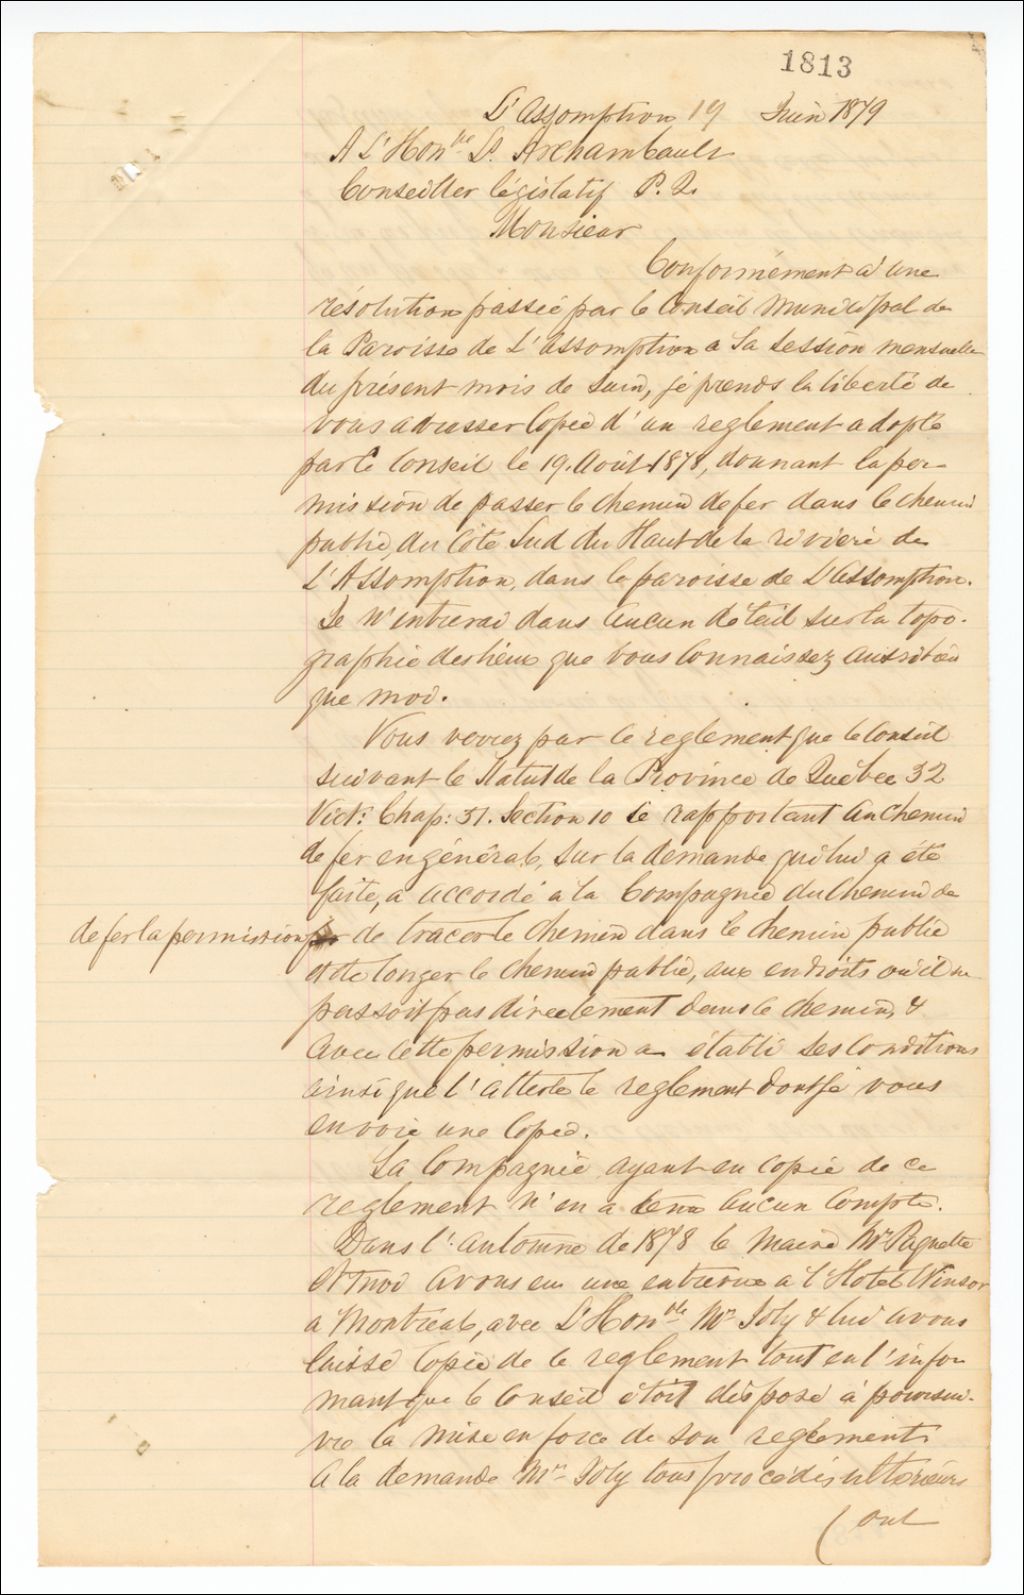 1813
L'Assomption 19 Juin 1879
A L'Honble L. Archambault
Conseiller législatif P. Q.
Monsieur
Conformément à une
résolution passée par le Conseil Municipal de
la Paroisse de L'Assomption a Sa Session mensuelle
du présent mois de Juin, je prends la liberté de
vous adresser Copie d'un reglement adopté
par le Conseil le 19. Août 1878, donnant la per-
mission de passer le chemin de fer dans le chemin
public, du Côté Sud du Haut de la rivière de
L'Assomption, dans la paroisse de L'Assomption.
Je n'entrerai dans aucun détail sur la topo-
graphie des lieux que vous Connaissez aussi bien
que moi.
Vous verrez par le reglement que le Conseil
suivant le Statut de la Province de Québec 32
Vict: Chap: 51. Section 10 se rapportant au Chemin
de fer en général, sur la demande qui lui a été
faite, a accordé a la Compagnie du Chemin de
de fer la permission de tracer le Chemin dans le chemin public
et de longer le chemin public, aux endroits où il ne
passoit pas directement dans le chemin, &
avec cette permission a établi ses Conditions
ainsi que l'atteste le reglement dont je vous
envoie une Copie.
La Compagnie ayant eu copie de ce
reglement n'en a tenu aucun Compte.
Dans l'automne de 1878 le Maire Mr Paquette
et moi avons eu une entrevue a l'Hotel Winsor
a Montréal, avec L'Honble Mr Joly & lui avons
laissé Copie de ce reglement tout en l'infor
mant que le Conseil étoit disposé à poursui-
vre la mise en force de son reglement.
A la demande Mr Joly tous procédés ultérieurs
( ont